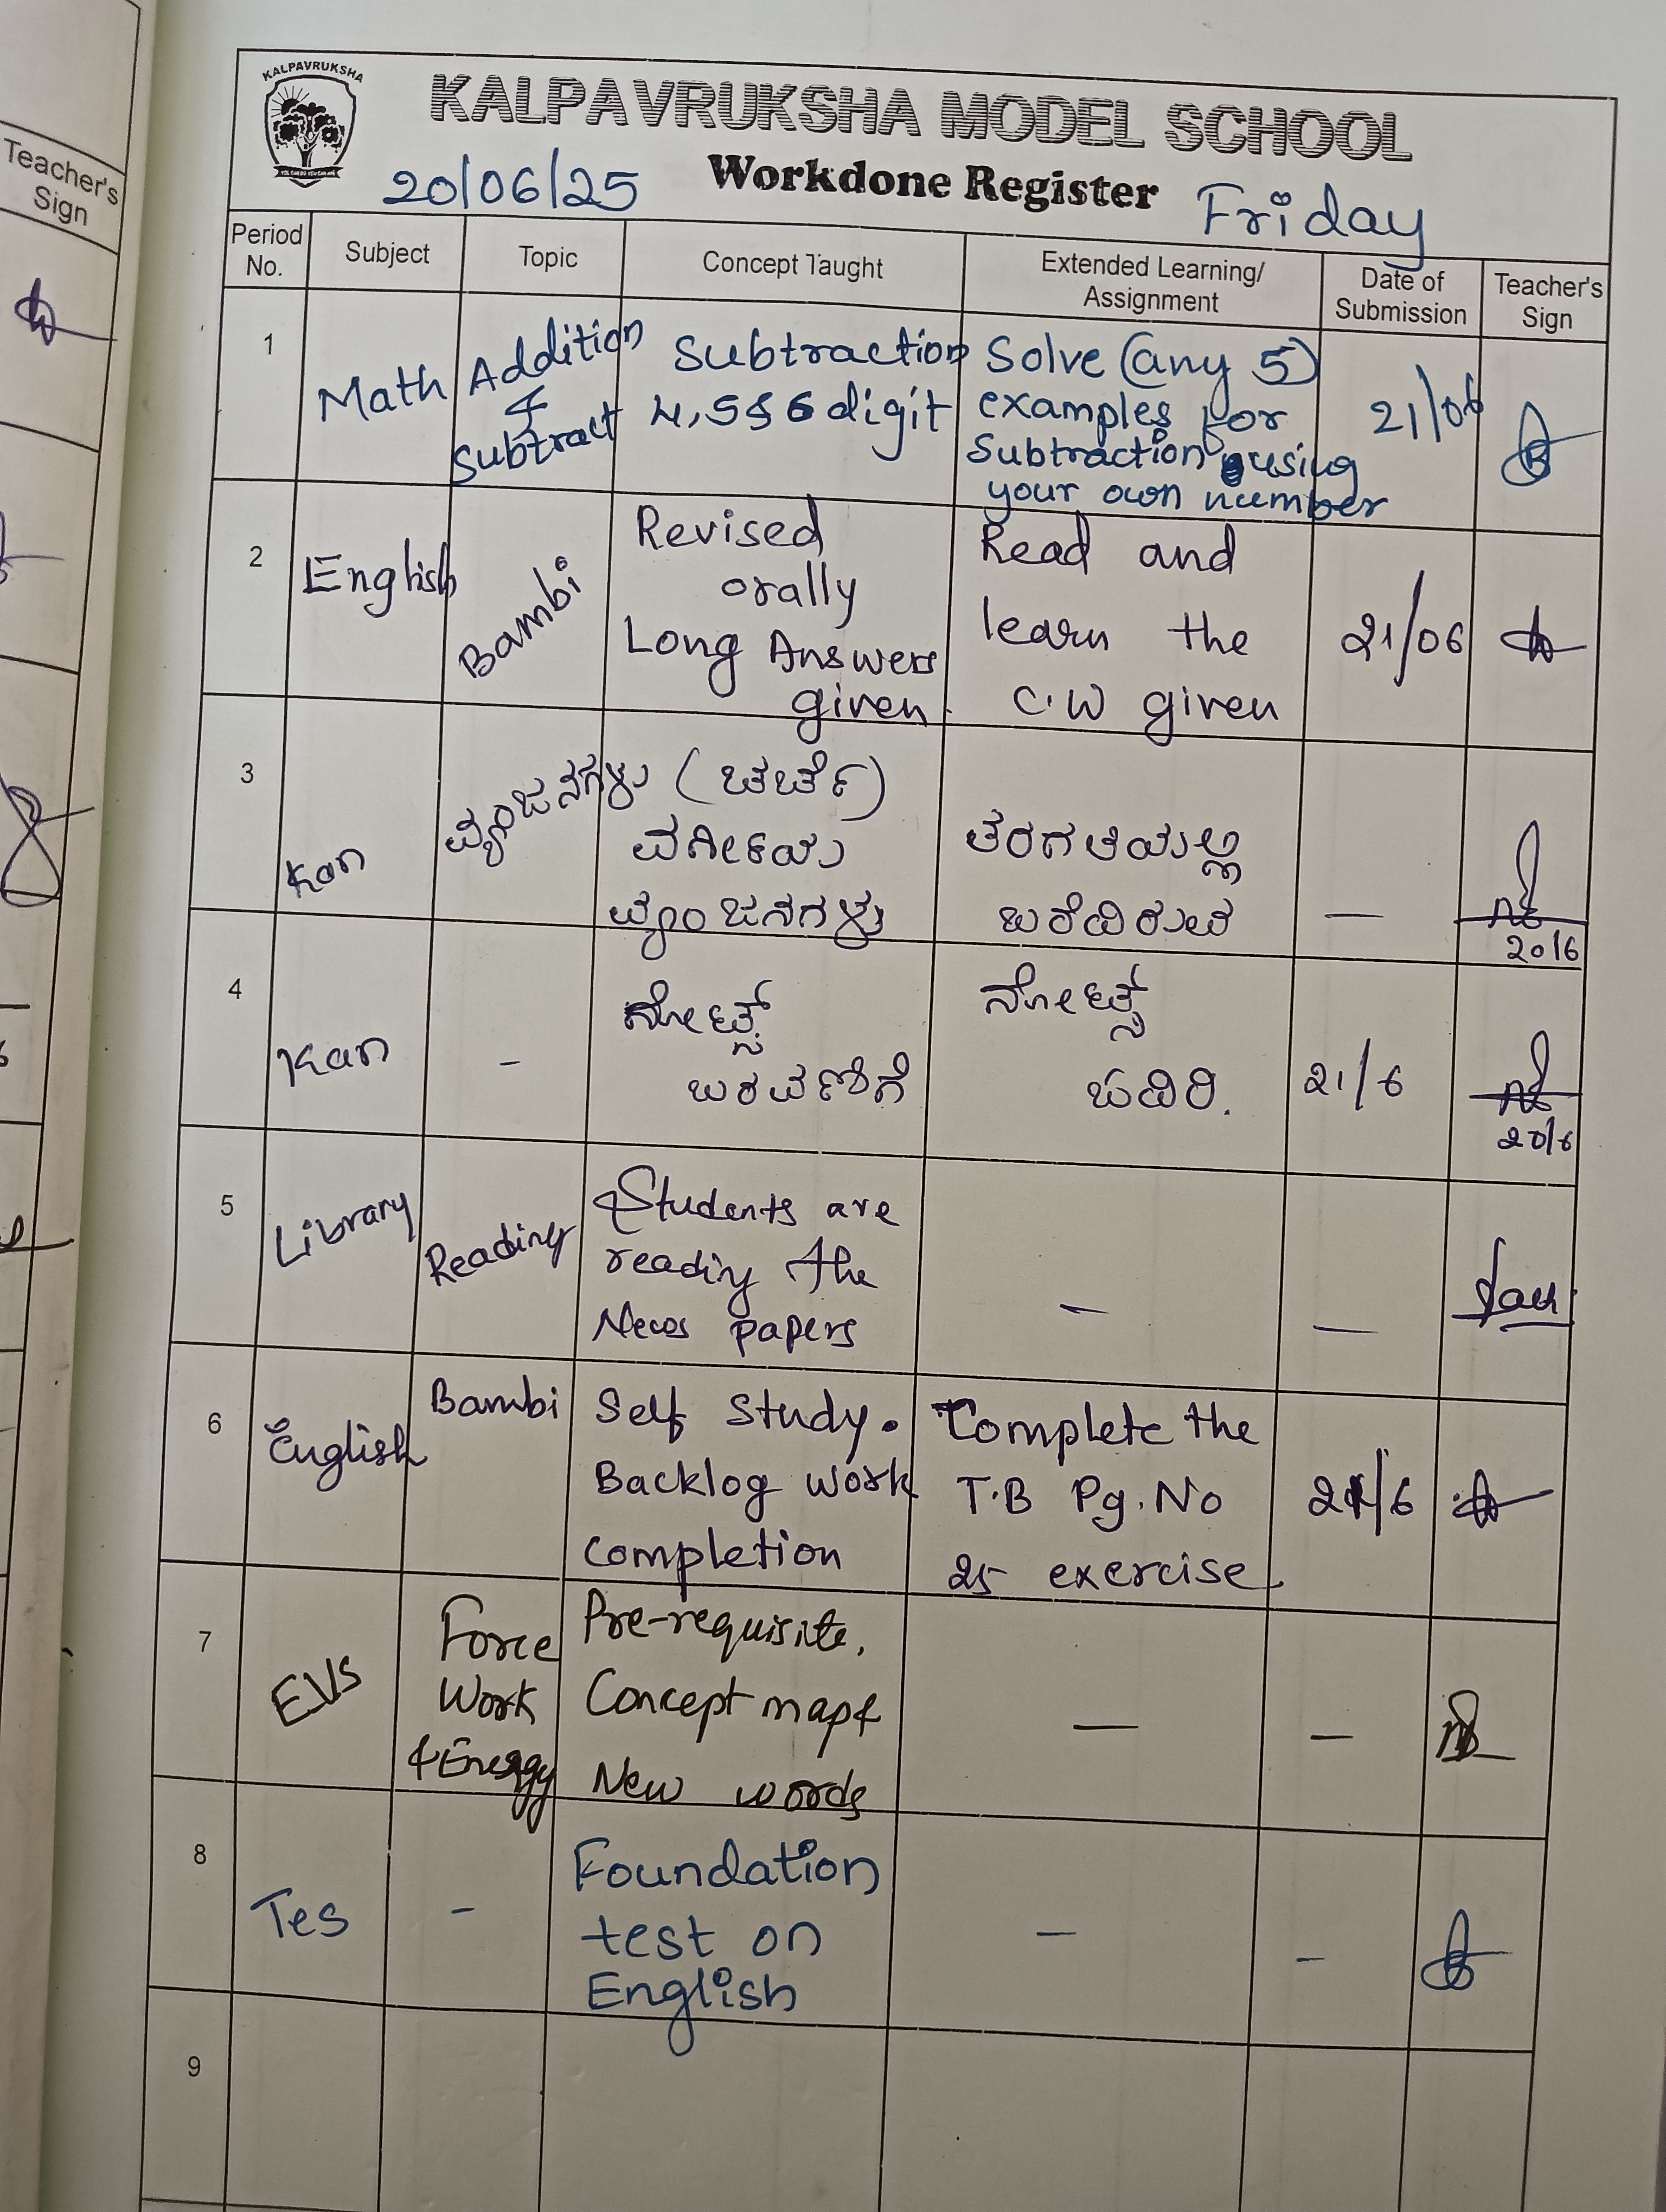 Teacher's
Sign
KALPAVRUKSHA
KALPAVRUKSHA MODEL SCHOOL
20/06/25 Workdone Register Friday
Period No. Subject Topic Concept Taught Extended Learning/ Assignment Date of Submission Teacher's Sign
1 Math Addition & Subtract
Subtraction
4,5&6 digit
Solve (any 5)
examples for
Subtraction using
your own number
21/06
2 English Bambi
Revised
orally
Long Answers
given.
Read and
learn the
C.W given
21/06
3 Kan ವ್ಯಂಜನಗಳು (ಚರ್ಚೆ)
ವರ್ಗೀಯ
ವ್ಯಂಜನಗಳು
ತರಗತಿಯಲ್ಲಿ
ಬರೆದಿರುವ
—
20/6
4 Kan -
ನೋಟ್ಸ್
ಬರವಣಿಗೆ
ನೋಟ್ಸ್
ಓದಿರಿ.
21/6
20/6
5 Library Reading
Students are
reading the
News papers
—
—
6 English Bambi
Self Study.
Backlog work
completion
Complete the
T.B Pg.No
25 exercise.
21/6
7 EVS
Force
Work
& Energy
Pre-requisite,
Concept map &
New words
—
—
8 Tes -
Foundation
test on
English
—
-
9